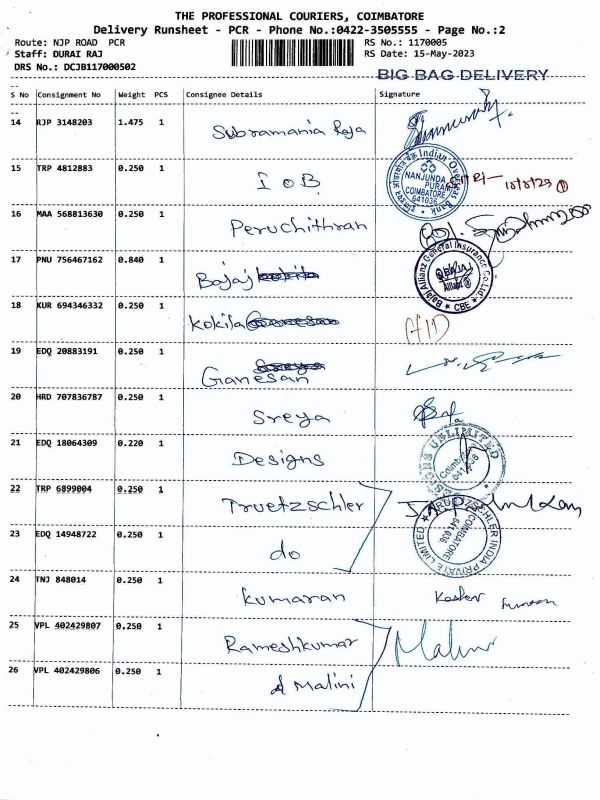 THE PROFESSIONAL COURIERS, COIMBATORE
Delivery Runsheet - PCR - Phone No.:0422-3505555 - Page No.:2
Route: NJP ROAD PCR RS No.: 1170005
Staff: DURAI RAJ RS Date: 15-May-2023
DRS No.: DCJB117000502
BIG BAG DELIVERY
S No Consignment No Weight PCS Consignee Details Signature
14 RJP 3148203 1.475 1 Subramania Raja
15 TRP 4812883 0.250 1 IOB
Indian Overseas Bank
NANJUNDA
PURAM
COIMBATORE
641036
16 MAA 568813630 0.250 1 Peruchithran
17 PNU 756467162 0.840 1 Bajaj
Bajaj Allianz General Insurance Co. Ltd.
CBE
18 KUR 694346332 0.250 1 Kokila
19 EDQ 20883191 0.250 1 Ganesan
20 HRD 707836787 0.250 1 Sreya
21 EDQ 18064309 0.220 1 Designs
UNLIMITED
22 TRP 6899004 0.250 1 Truetzschler
TRUETZSCHLER INDIA PRIVATE LIMITED
COIMBATORE
641 036
23 EDQ 14948722 0.250 1 do
24 TNJ 848014 0.250 1 Kumaran
25 VPL 402429807 0.250 1 Rameshkumar Malini
26 VPL 402429806 0.250 1 Malini